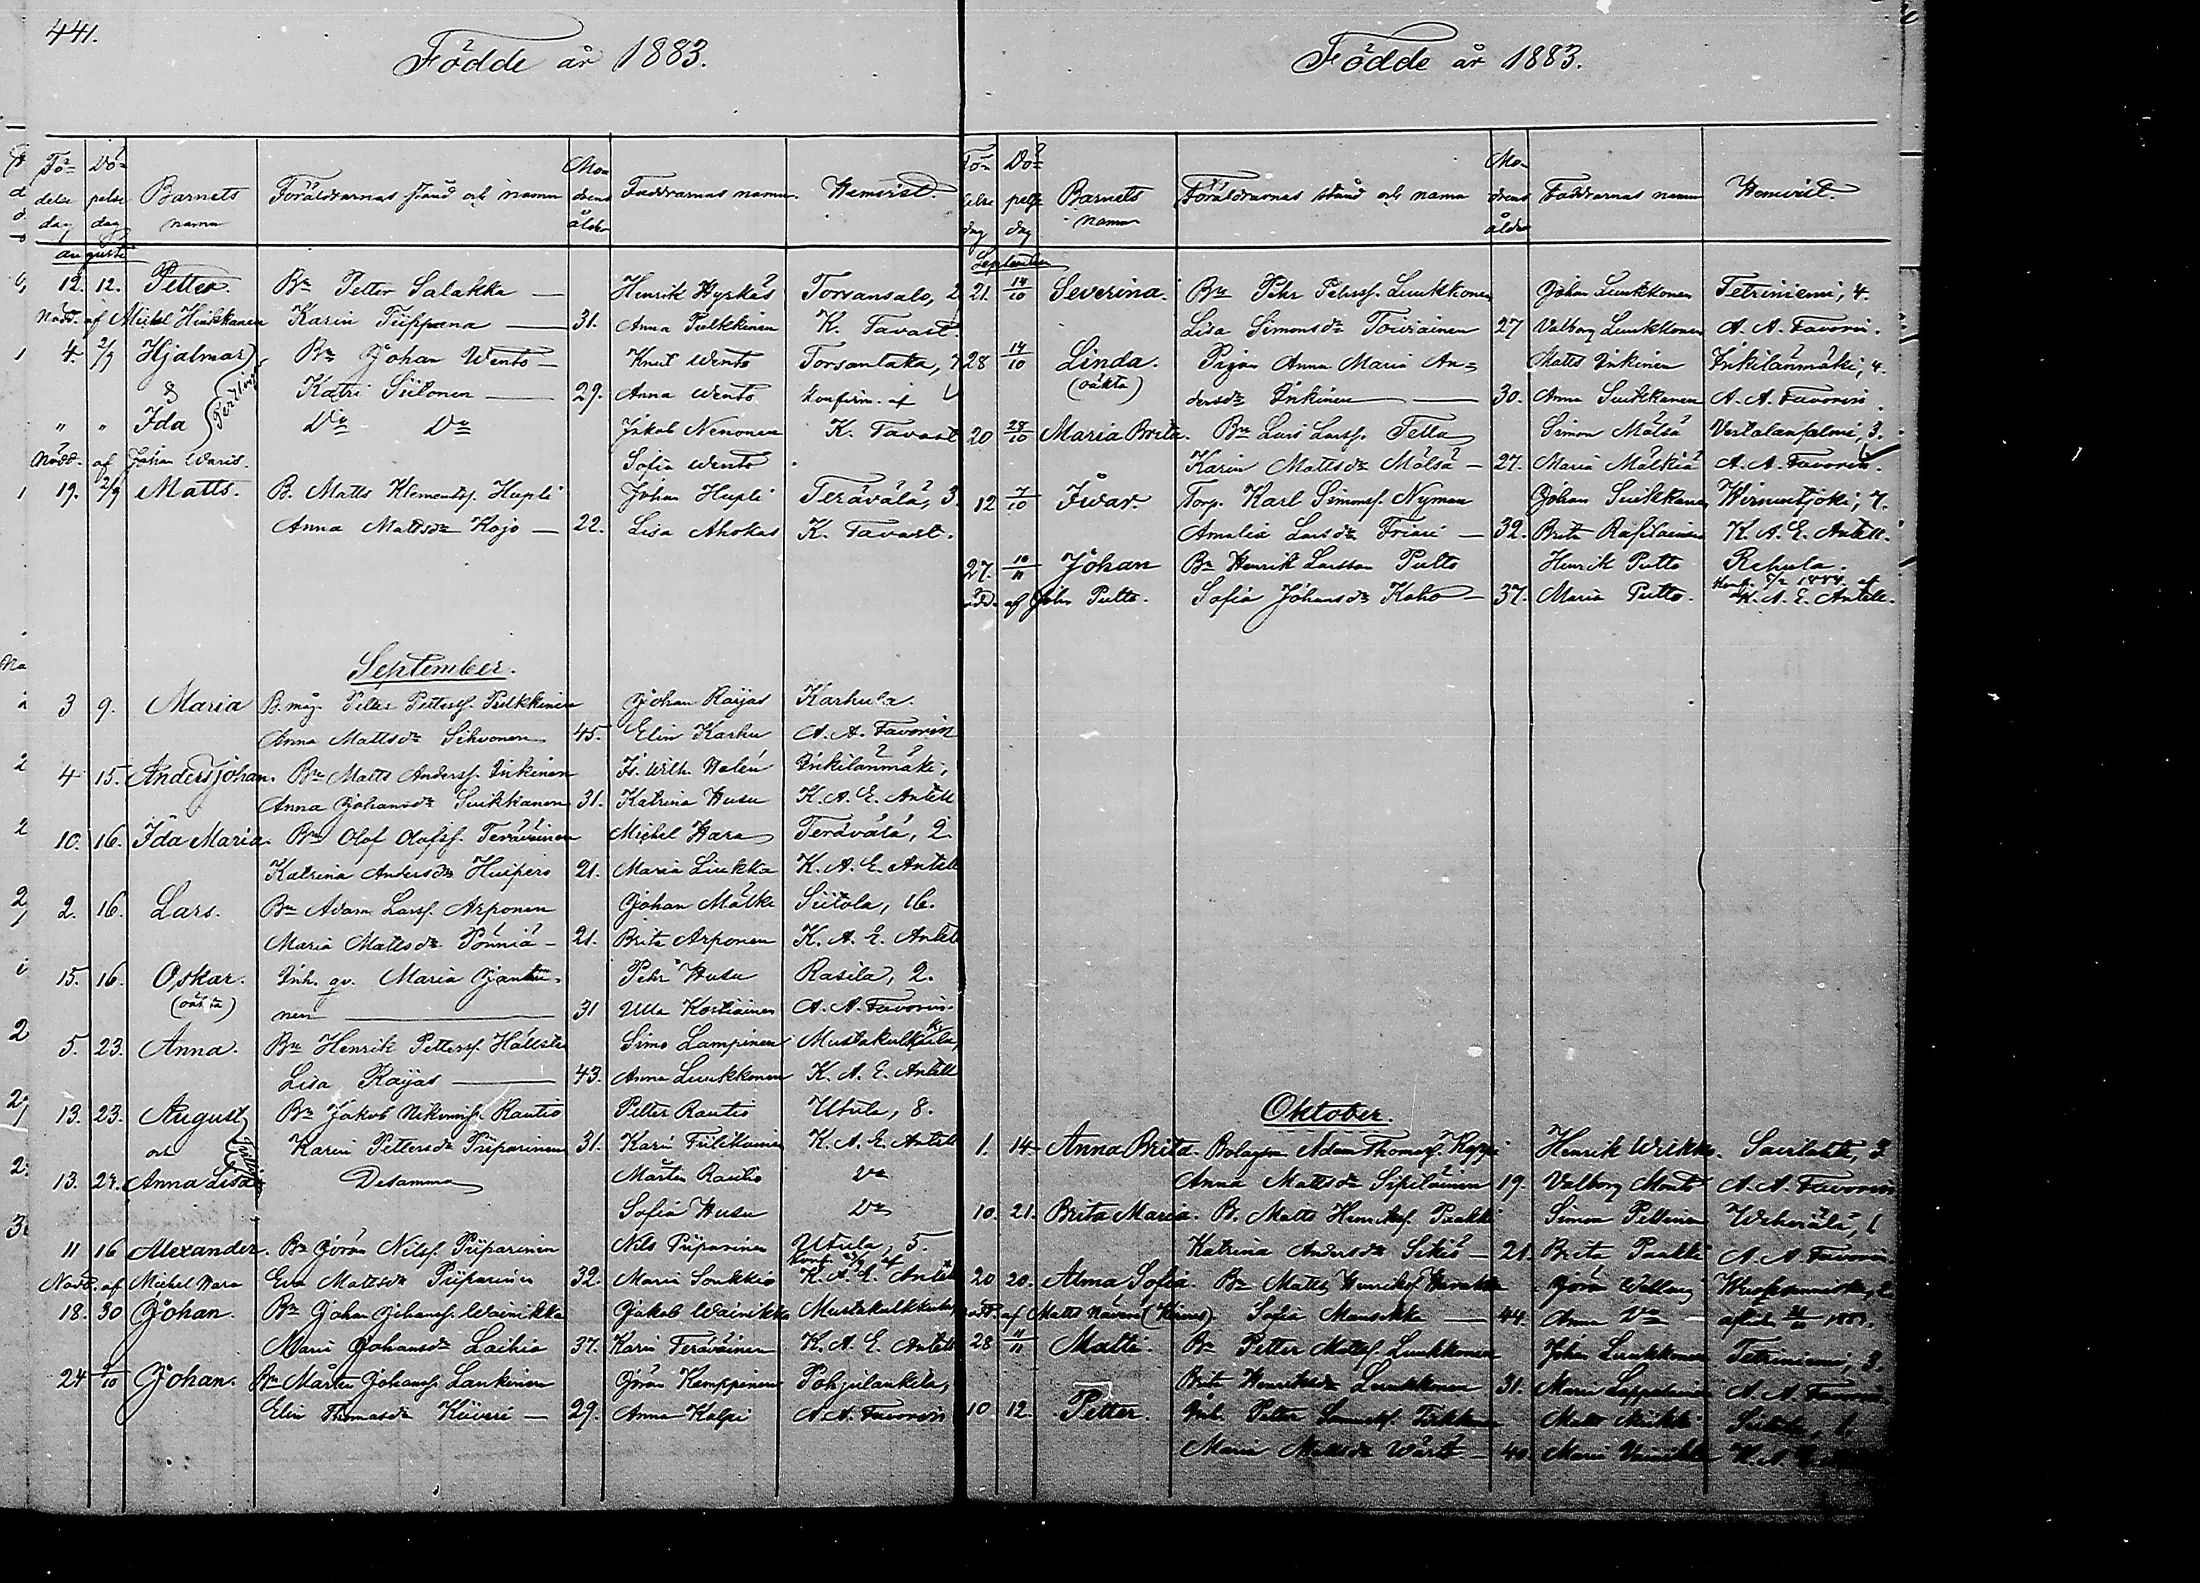 441.
Födde år 1883.
Fö- Dö- Mo-
delse pelse Barnets Föräldrarnas stånd och namn drens Faddrarnas namn. Hemvist.
dag dag namn ålder
Augusti
12. 12. Petter. Bn Petter Salakka — Henrik Hyrkäs Torsansalo, 2
Nödd. af Michel Hinkkanen Karin Tiippana — 31. Anna Pulkkinen K. Tavast.
4. 2/9 Hjalmar Bn Johan Wento — Knut Wento Torsantaka, 7
& Tvillingar Katri Siitonen — 29. Anna Wento Konfirm. af
" " Ida Do Do Jakob Nenonen K. Tavast
Nödd. af Johan Waris. Sofia Wento
19. 2/9 Matts. B. Matts Klementsf. Hupli Johan Hupli Terävälä, 3.
Anna Mattsdr Kojo — 22. Lisa Ahokas K. Tavast.
September.
3 9. Maria B.måg Petter Pettersf. Pulkkinen Johan Raijas Karhula.
Anna Mattsdr Sihvonen 45. Elin Karhu A. A. Favorin
4 15. Anders Johan. Bn Matts Andersf. Inkinen Js. Wilh. Walén Inkilänmäki,
Anna Johansdr Suikkanen 31. Katrina Husu K. A. E. Antell
10. 16. Ida Maria. Bn Olof Olofsf. Teräväinen Michel Wara Terävälä, 2.
Katrina Andersdr Huipero 21. Maria Liukka K. A. E. Antell
2. 16. Lars. Bn Adam Larsf. Arponen Johan Mälke Siitola, 16.
Maria Mattsdr Pönniä — 21. Brita Arponen K. A. E. Antell
15. 16. Oskar. Inh. qv. Maria Jantu- Pehr Husu Rasila, 2.
(oäkta) nen — 31 Ulla Kostiainen A. A. Favorin.
5. 23. Anna. Bn Henrik Pettersf. Hällsten Simo Lampinen Mustakulkkula,
Lisa Raijas — 43. Anna Luukkonen K. A. E. Antell
13. 23. August Bn Jakob Rautio Petter Rautio Utula, 8.
och Karin Pettersdr Piiparinen 31. Karin K. A. E. Antell
13. 24. Anna Lisa Desamma Mårten Rautio Do
Sofia Husu Do
11 16 Alexander. Bn Göran Nilsf. Piiparinen Nils Piiparinen Utula, 5.
Nödd. af Michel Wara Eva Mattsdr Piiparinen 32. Maria Soukkio K. A. E. Antell
18. 30 Johan. Bn Johan Johansf. Wainikka Jakob Wainikka Mustakulkkula
Maria Johansdr Laihia 37. Karin Teräväinen K. A. E. Antell
24 /10 Johan. Bn Mårten Johansf. Lankinen Göran Kemppinen Pohjalankila,
Elin Thomasdr Kiiveri — 29. Anna Kolpi A. A. Favorin
Födde år 1883.
Fö- Dö- Mo-
delse pelse Barnets Föräldrarnas stånd och namn drens Faddrarnas namn Hemvist.
dag dag namn ålder
September
21. 14/10 Severina. Bn Pehr Pehrsf. Luukkonen Johan Luukkonen Tetriniemi, 4.
Lisa Simonsdr Toiviainen 27 Valborg Luukkonen A. A. Favorin.
28 14/10 Linda. Pigan Anna Maria An- Matts Inkinen Inkilänmäki, 4.
(oäkta) dersdr Inkinen — 30. Anna Suikkanen A. A. Favorin
20 28/10 Maria Brita. Bn Lars Larsf. Tella Simon Mälsä 3.
Karin Mattsdr Mälsä — 27. Maria Mälkiä A. A. Favorin.
12 7/10 Iwar. Torp. Karl Simonsf. Nyman Johan Suikkanen Wirmutjoki, 7.
Amalia Larsdr Friari — 32. Brita Rasilainen K. A. E. Antell.
27. 10/11 Johan Bn Henrik Larsson Pulto Henrik Pulto Rehula.
nödd. af Johan Pulto. Sofia Johansdr Koho — 37. Maria Pulto. Konf. 5/2 1884 af K. A. E. Antell.
Oktober.
1. 14. Anna Brita. Bolagsm. Adam Thomasf. Henrik Weikko. 3
Anna Mattsdr Sipiläinen 19. Valborg Monto A. A. Favorin
10. 21. Brita Maria. B. Matts Henriksf. Paakki Simon Pellinen Weherälä, 1
Katrina Andersdr Sikiö — 21. Brita Paakki A. A. Favorin
20 20. Alma Sofia. Bn Matts Henriksf. Göran 2
nödd. af Matts Sofia Mansikka — 44. Anna Do — 1883.
28 /11 Matts. Bn Petter Mattsf. Luukkonen Johan Luukkonen Tetriniemi, 3.
Brita Henriksdr Luukkonen 31. Maria Leppalainen A. A. Favorin.
10. 12. Petter. Inh. Petter Matts Siitola, 1.
Maria Mattsdr — 40. Maria K. A. E.